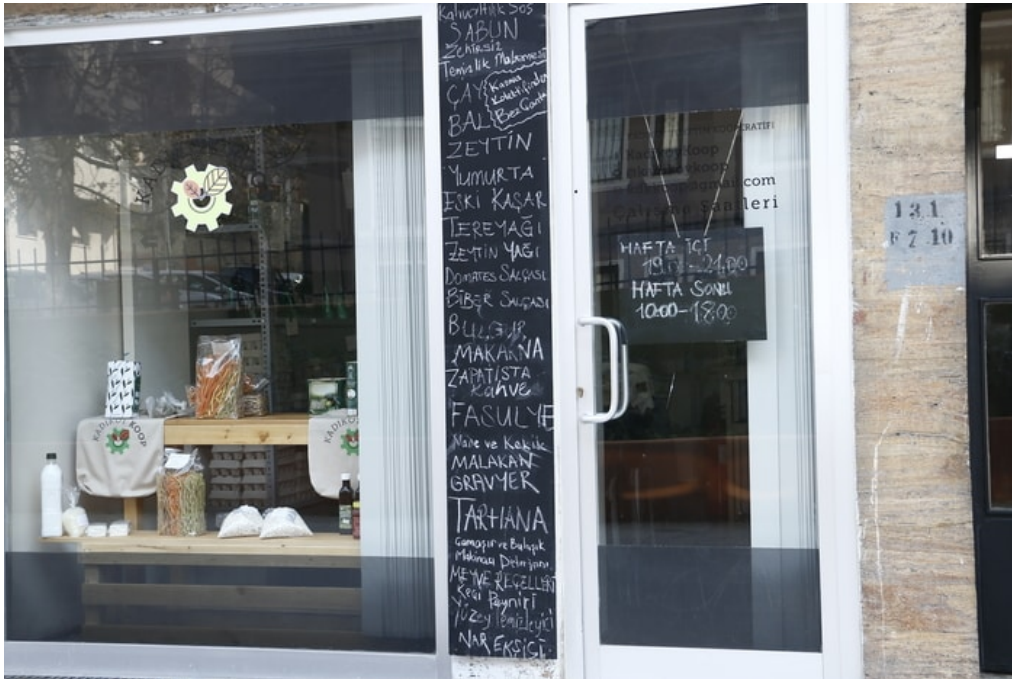 KADIKÖY KOOP
KADIKÖY
Kahvaltılık Sos
SABUN
Zehirsiz
Temizlik Malzemesi
ÇAY
Kolektifinden
Bez Çanta
BAL
ZEYTİN
YUMURTA
ESKİ KAŞAR
TEREYAĞI
ZEYTİN YAĞI
DOMATES SALÇASI
BİBER SALÇASI
BULGUR
MAKARNA
ZAPATİSTA
Kahve
FASULYE
Nane ve Kekik
MALAKAN
GRAVYER
TARHANA
Çamaşır ve Bulaşık
Makinası Deterjanı
MEYVE REÇELLERİ
Keçi Peyniri
Yüzey Temizleyici
NAR EKŞİSİ
KOOPERATİFİ
KadıköyKoop
kadikoykoop
@gmail.com
Çalışma Saatleri
HAFTA İÇİ
21.00
HAFTA SONU
10.00-18.00
131
7.10